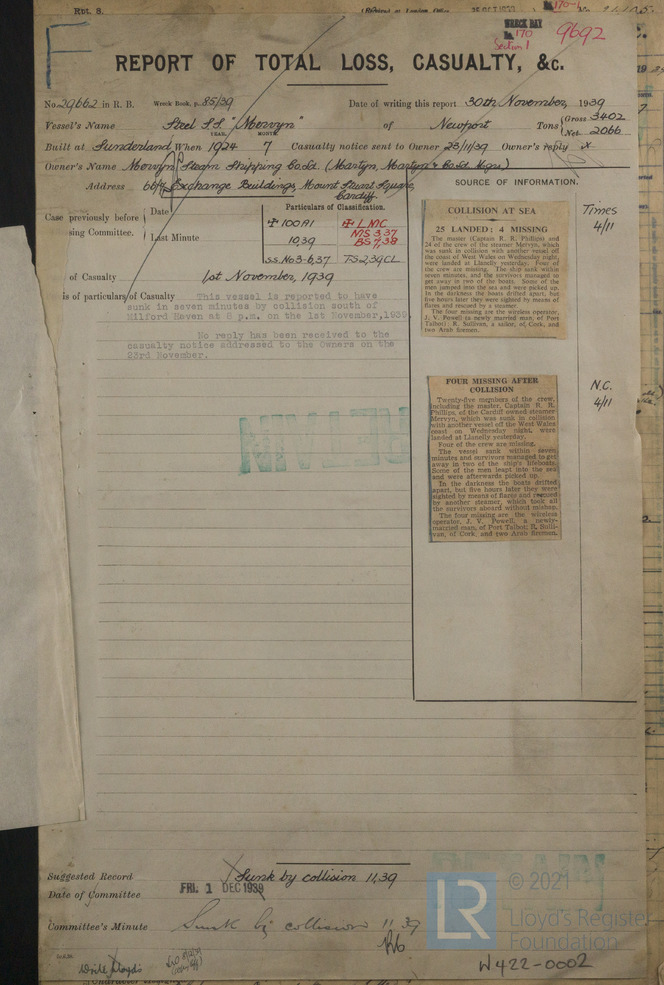 Rpt. 8.
WRECK DAY
No. 170
Section 1
9692
REPORT OF TOTAL LOSS, CASUALTY, &c.
No. 29662 in R. B. Wreck Book, p. 85/39 Date of writing this report 30th November, 1939
Vessel's Name Steel S.S. "Mervyn" of Newport Tons Gross 3402 Net 2066
YEAR. MONTH
Built at Sunderland When 1924 7 Casualty notice sent to Owner 23/11/39 Owner's reply x
Owner's Name Mervyn Steam Shipping Co. Ld. (Martyn, Martyn & Co. Ld. Mgrs.)
Address Exchange Buildings, Mount Stuart Square, Cardiff.
SOURCE OF INFORMATION.
Case previously before
sing Committee.
Date
Last Minute
Particulars of Classification.
100A1 LMC
1039 MS 3,37
BS 7,38
s.s. No 3-6,37 TS 2,39 CL
of Casualty 1st November, 1939
is of particulars of Casualty This vessel is reported to have
sunk in seven minutes by collision south of
Milford Haven at 8 p.m. on the 1st November, 1939
No reply has been received to the
casualty notice addressed to the Owners on the
23rd November.
COLLISION AT SEA
25 LANDED: 4 MISSING
The master (Captain R. R. Phillips) and
24 of the crew of the steamer Mervyn, which
was sunk in collision with another vessel off
the coast of West Wales on Wednesday night,
were landed at Llanelly yesterday. Four of
the crew are missing. The ship sank within
seven minutes, and the survivors managed to
get away in two of the boats. Some of the
men jumped into the sea and were picked up.
In the darkness the boats drifted apart, but
five hours later they were sighted by means of
flares and rescued by a steamer.
The four missing are the wireless operator,
J. V. Powell (a newly married man, of Port
Talbot); R. Sullivan, a sailor, of Cork, and
two Arab firemen.
Times
4/11
FOUR MISSING AFTER
COLLISION
Twenty-five members of the crew,
including the master, Captain R. R.
Phillips, of the Cardiff owned steamer
Mervyn, which was sunk in collision
with another vessel off the West Wales
coast on Wednesday night, were
landed at Llanelly yesterday.
Four of the crew are missing.
The vessel sank within seven
minutes and survivors managed to get
away in two of the ship's lifeboats.
Some of the men leapt into the sea
and were afterwards picked up.
In the darkness the boats drifted
apart, but five hours later they were
sighted by means of flares and rescued
by another steamer, which took all
the survivors aboard without mishap.
The four missing are the wireless
operator, J. V. Powell, a newly-
married man, of Port Talbot; R. Sulli-
van, of Cork, and two Arab firemen.
N.C.
4/11
Suggested Record Sunk by collision 11,39
Date of Committee FRI. 1 DEC 1939
Committee's Minute Sunk by collision 11.39
Write Lloyds
LR
© 2021
Lloyd's Register
Foundation
W422-0002